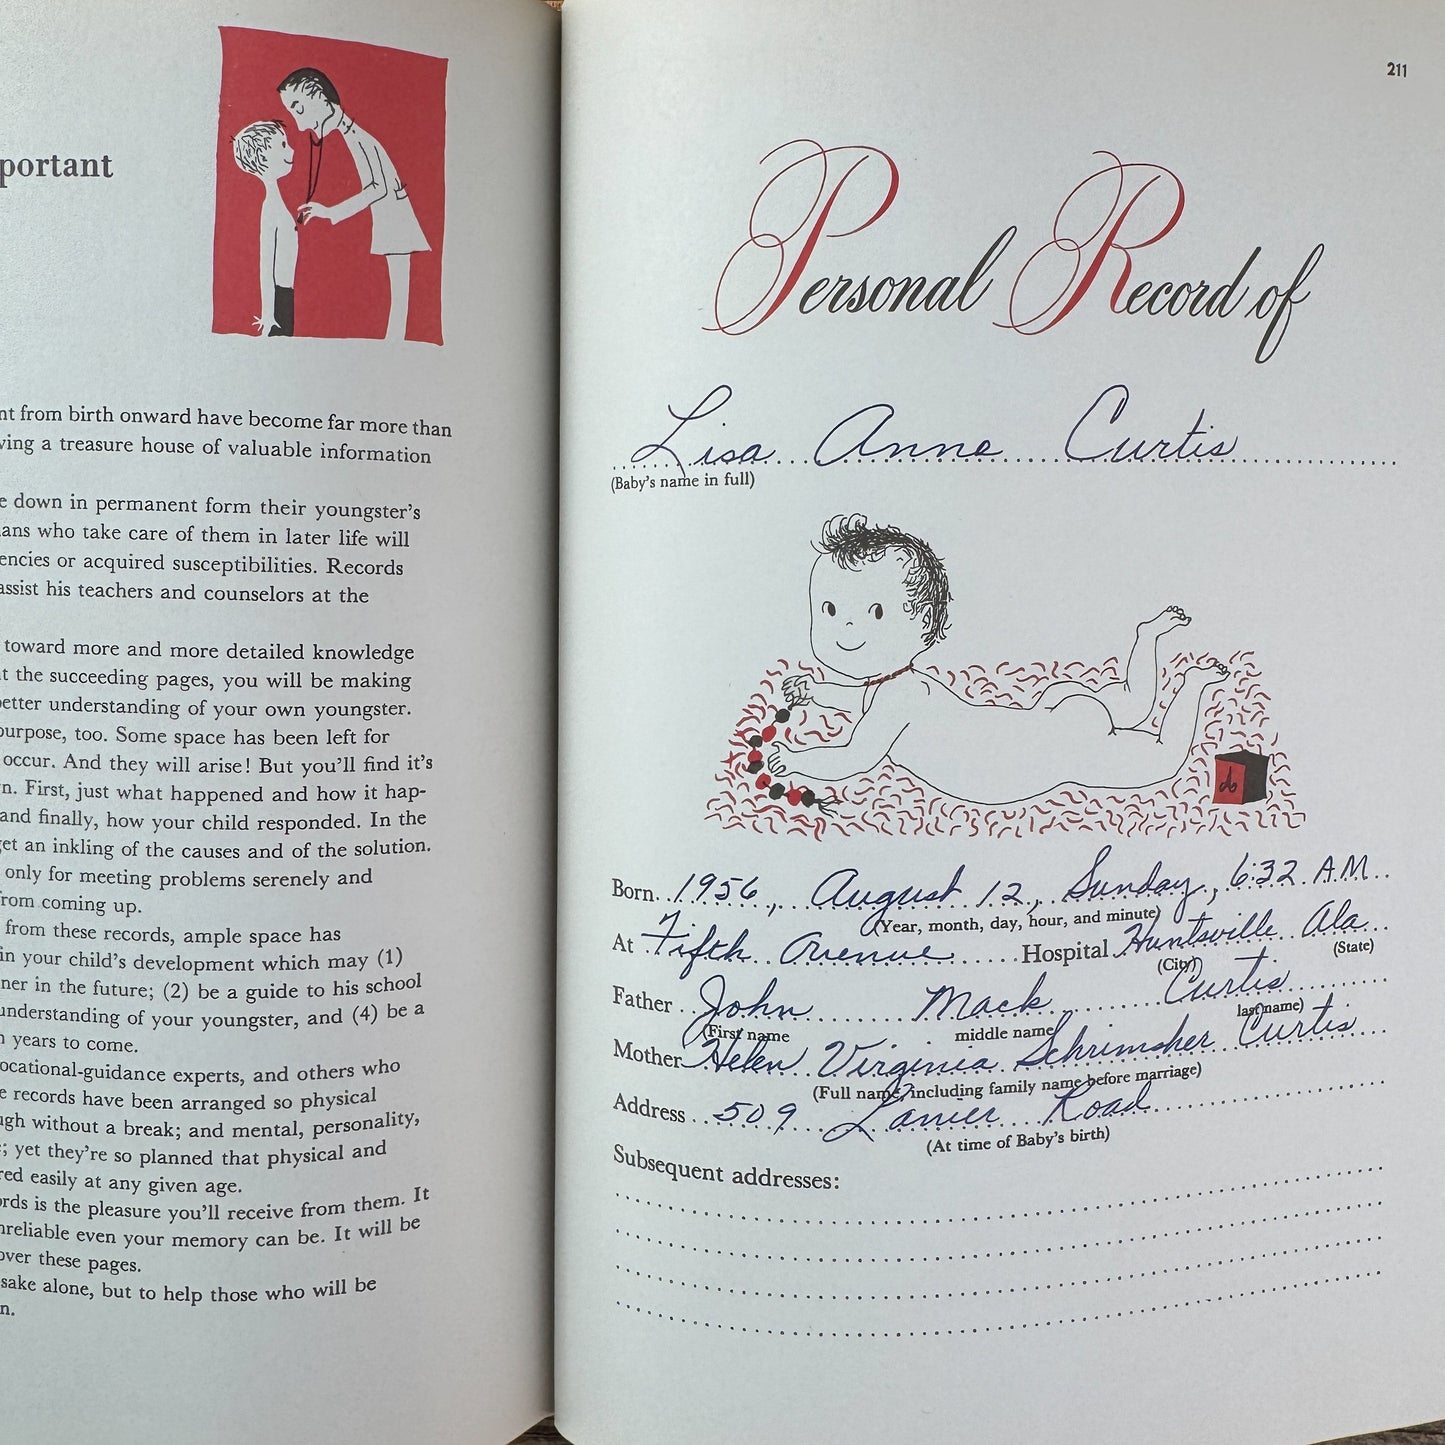 portant
nt from birth onward have become far more than
ving a treasure house of valuable information
e down in permanent form their youngster's
ians who take care of them in later life will
encies or acquired susceptibilities. Records
assist his teachers and counselors at the
toward more and more detailed knowledge
t the succeeding pages, you will be making
better understanding of your own youngster.
purpose, too. Some space has been left for
occur. And they will arise! But you'll find it's
n. First, just what happened and how it hap-
and finally, how your child responded. In the
get an inkling of the causes and of the solution.
only for meeting problems serenely and
from coming up.
from these records, ample space has
in your child's development which may (1)
ner in the future; (2) be a guide to his school
understanding of your youngster, and (4) be a
n years to come.
ocational-guidance experts, and others who
e records have been arranged so physical
ugh without a break; and mental, personality,
; yet they're so planned that physical and
red easily at any given age.
ords is the pleasure you'll receive from them. It
nreliable even your memory can be. It will be
over these pages.
sake alone, but to help those who will be
n.
211
Personal Record of
Lisa Anne Curtis
(Baby's name in full)
Born 1956, August 12, Sunday, 6:32 A.M.
(Year, month, day, hour, and minute)
At Fifth Avenue Hospital Huntsville Ala.
(City) (State)
Father John Mack Curtis
(First name middle name last name)
Mother Helen Virginia Schrimsher Curtis
(Full name, including family name before marriage)
Address 509 Lanier Road
(At time of Baby's birth)
Subsequent addresses: